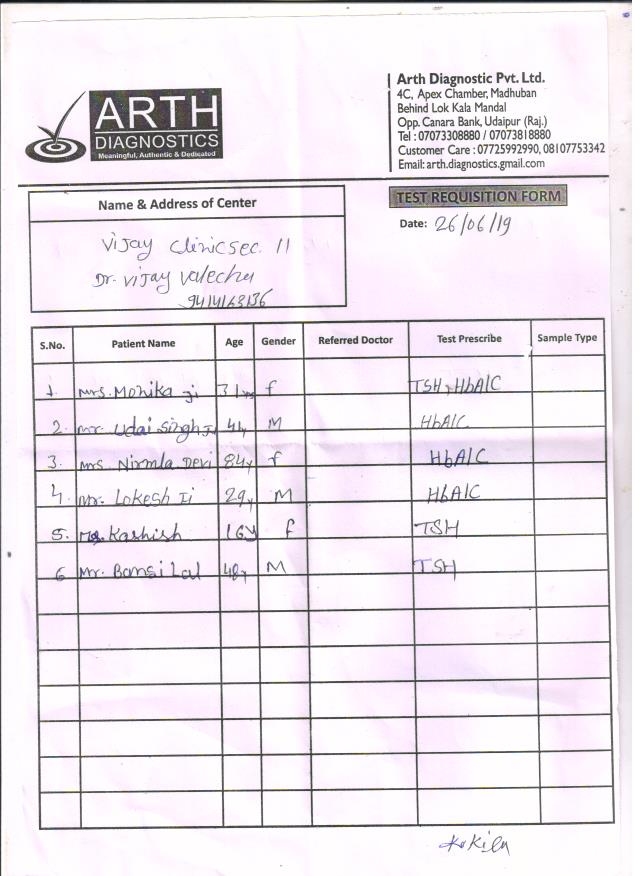 ARTH
DIAGNOSTICS
Meaningful, Authentic & Dedicated
Arth Diagnostic Pvt. Ltd.
4C, Apex Chamber, Madhuban
Behind Lok Kala Mandal
Opp. Canara Bank, Udaipur (Raj.)
Tel : 07073308880 / 07073818880
Customer Care : 07725992990, 08107753342
Email: arth.diagnostics.gmail.com
TEST REQUISITION FORM
Date: 26/06/19
Name & Address of Center
Vijay Clinic sec. 11
Dr. Vijay Valecha
9414163136
S.No. Patient Name Age Gender Referred Doctor Test Prescribe Sample Type
1. Mrs. Monika ji 31 f TSH, HbA1C
2. Mr. Udai Singh Ji 44 M HbA1C
3. Mrs Nirmla Devi 84y f HbA1C
4. Mr. Lokesh Ji 29y M HbA1C
5. Kashish 16y f TSH
6 Mr. Bansi Lal 48y M TSH